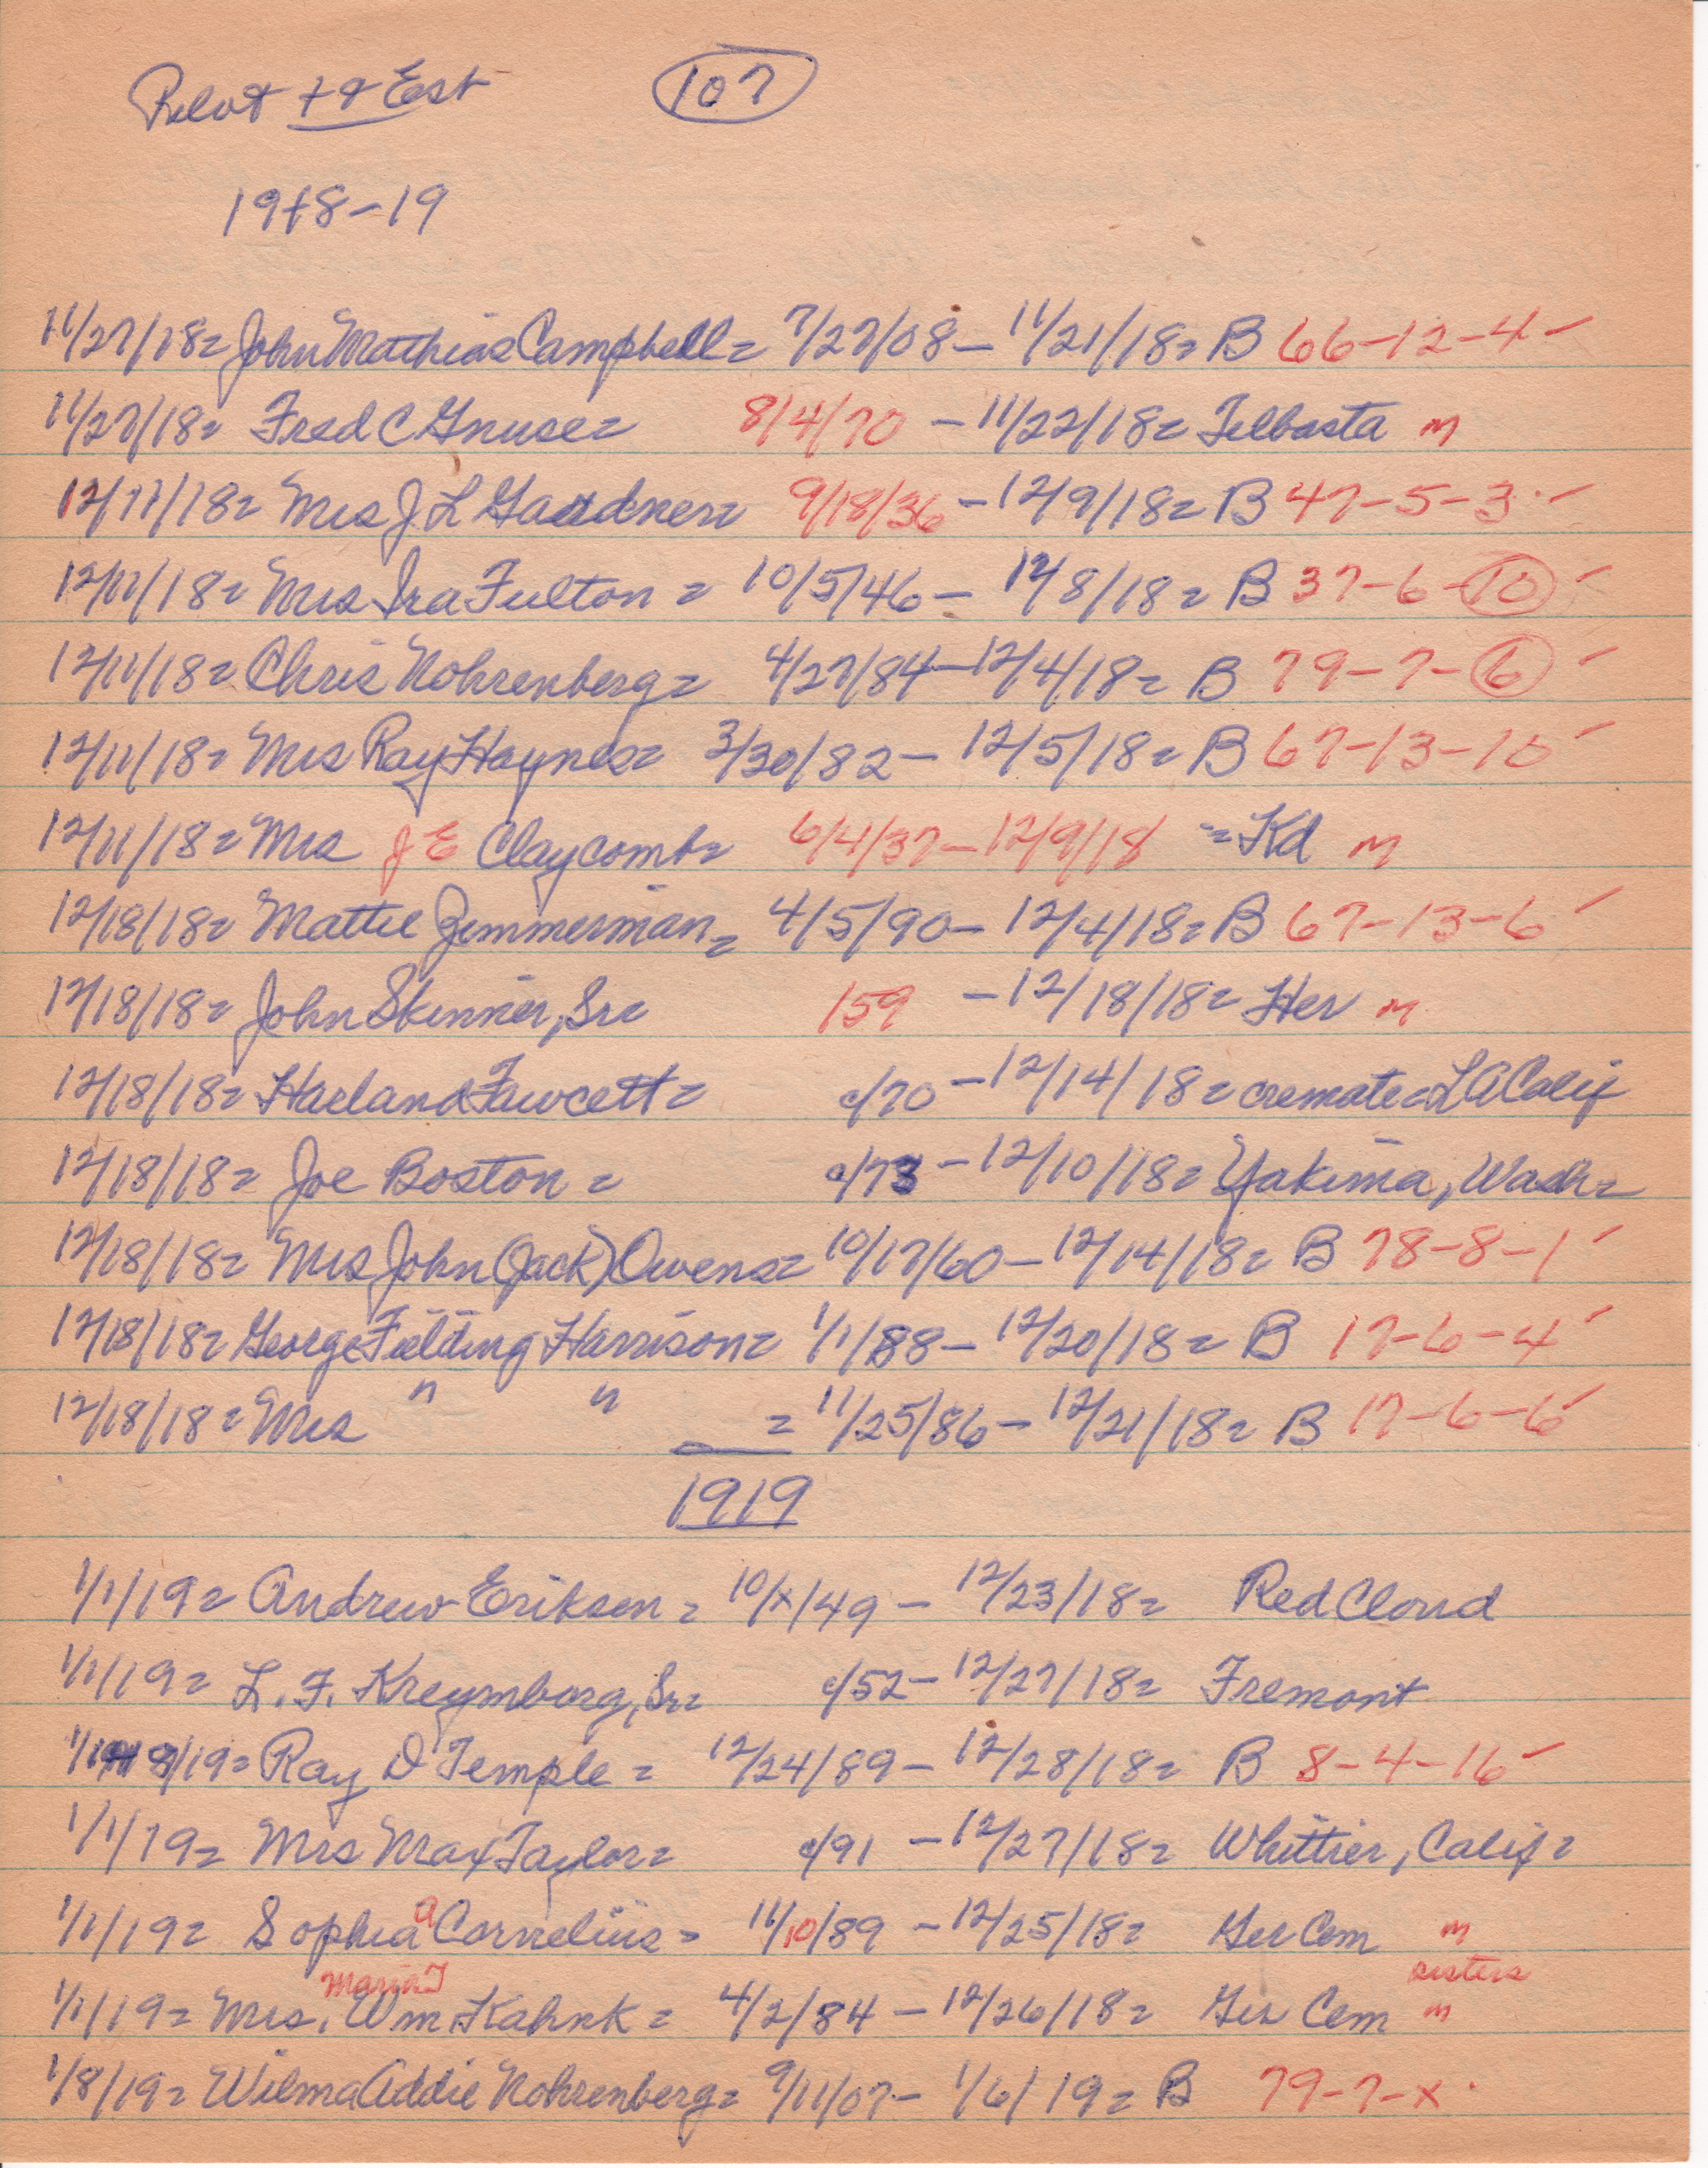 Pilot + & Est 107
1918-19
11/27/18= John Mathias Campbell= 7/27/08 - 11/21/18= B 66-12-4 ✓
11/27/18= Fred C Gnuse= 8/4/70 - 11/22/18= Telbasta m
12/11/18= Mrs J L Gardner= 9/18/36 - 12/9/18= B 47-5-3 ✓
12/11/18= Mrs Ira Fulton = 10/5/46 - 12/8/18= B 37-6-10 ✓
12/11/18= Chris Nohrenberg= 4/27/84 - 12/4/18= B 79-7-6 ✓
12/11/18= Mrs Ray Haynes= 3/30/82 - 12/5/18= B 67-13-10 ✓
12/11/18= Mrs J E Claycomb= 6/4/37 - 12/9/18 = Kd m
12/18/18= Mattie Zimmerman= 4/5/90 - 12/4/18= B 67-13-6 ✓
12/18/18= John Skinner, Sr= 159 - 12/18/18= Her m
12/18/18= Harland Fawcett= c/70 - 12/14/18= cremate= LA Calif
12/18/18= Joe Boston = c/73 - 12/10/18= Yakima, Wash=
12/18/18= Mrs John (Jack) Owens= 10/17/60 - 12/14/18= B 78-8-1 ✓
12/18/18= George Fielding Harrison= 1/1/88 - 12/20/18= B 17-6-4 ✓
12/18/18= Mrs " " = 11/25/86 - 12/21/18= B 17-6-6 ✓
1919
1/1/19= Andrew Eriksen = 10/x/49 - 12/23/18= Red Cloud
1/1/19= L. F. Kreymborg, Sr= c/52 - 12/27/18= Fremont
1/19= Ray D Temple = 12/24/89 - 12/28/18= B 8-4-16 ✓
1/1/19= Mrs Max Taylor= c/91 - 12/27/18= Whittier, Calif=
1/1/19= Sophia a Cornelius= 11/10/89 - 12/25/18= Ger Cem m
Maria T sisters
1/1/19= Mrs. Wm Kahnk = 4/2/84 - 12/26/18= Ger Cem m
1/8/19= Wilma Addie Nohrenberg= 9/11/07 - 1/6/19= B 79-7-x